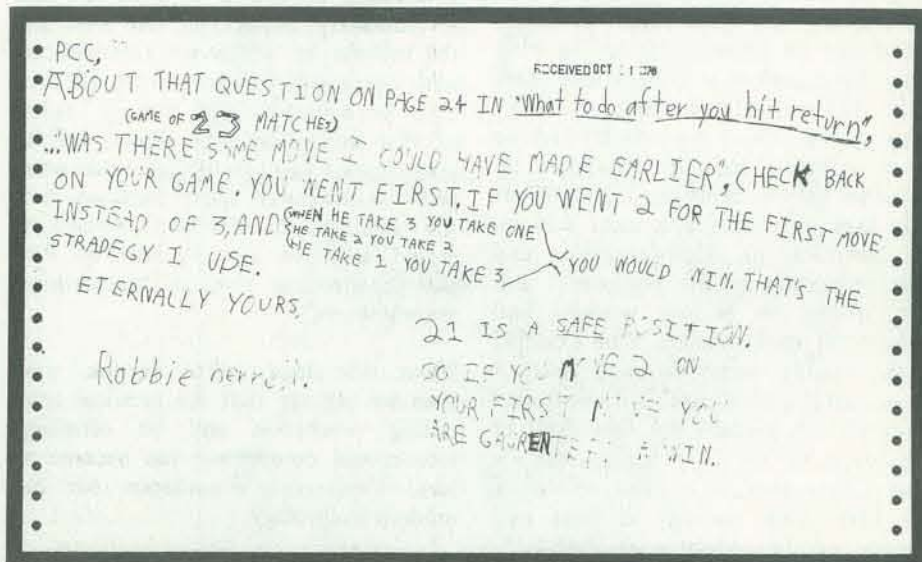 PCC,
RECEIVED OCT 1
ABOUT THAT QUESTION ON PAGE 24 IN "What to do after you hit return",
(GAME OF 23 MATCHES)
..."WAS THERE SOME MOVE I COULD HAVE MADE EARLIER", CHECK BACK
ON YOUR GAME. YOU WENT FIRST. IF YOU WENT 2 FOR THE FIRST MOVE
INSTEAD OF 3, AND
WHEN HE TAKE 3 YOU TAKE ONE
HE TAKE 2 YOU TAKE 2
HE TAKE 1 YOU TAKE 3
YOU WOULD WIN. THAT'S THE
STRADEGY I USE.
ETERNALLY YOURS,
Robbie
21 IS A SAFE POSITION.
SO IF YOU MOVE 2 ON
YOUR FIRST MOVE YOU
ARE A WIN.